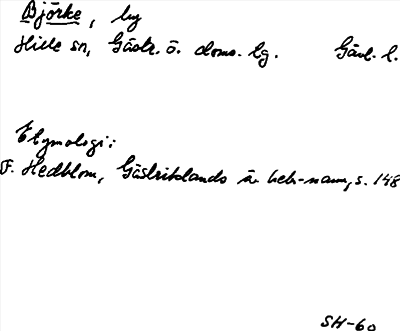 Björke, by
Hille sn, Gästr. ö. doms. lg. Gävl. l.
Etymologi:
F. Hedblom, Gästriklands ä. beb-namn, s. 148
SH-60